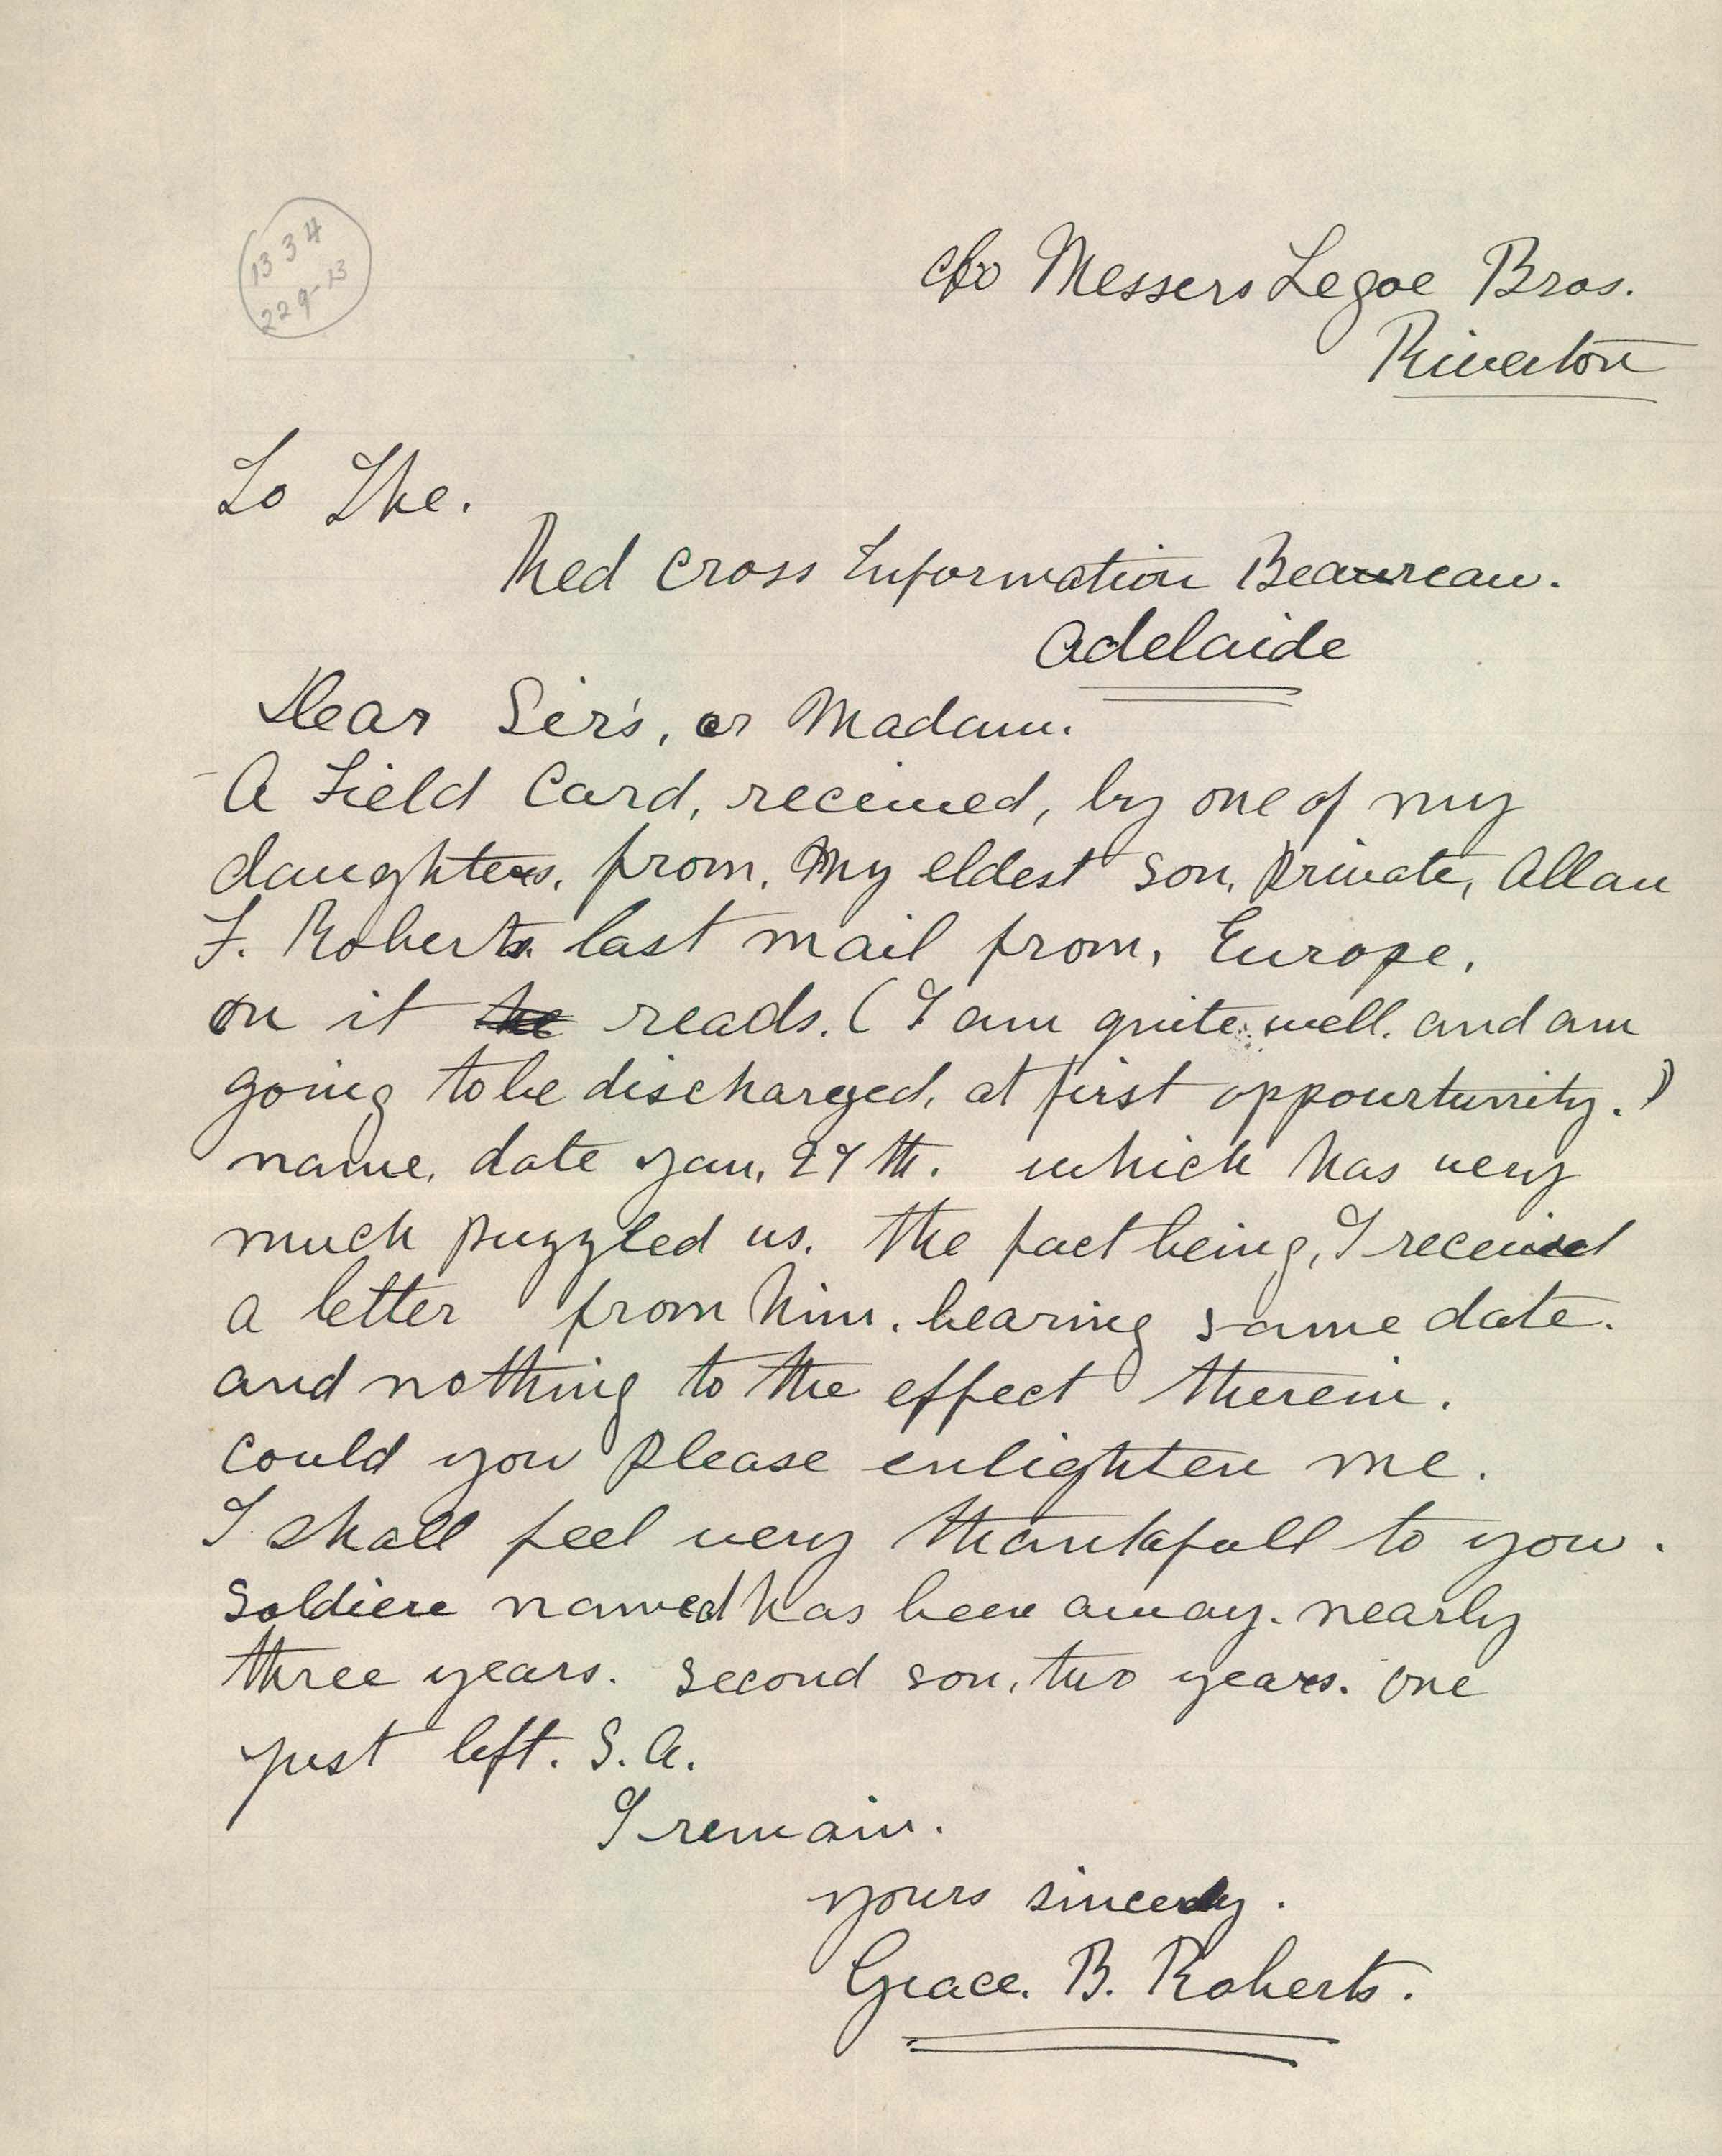 1334
229-13
c/o Messers Legoe Bros.
Riverton
To The.
Red Cross Information Beaureau.
Adelaide
Dear Sir's, or Madam.
A Field Card, received, by one of my
daughters, from, My eldest son, Private, Allan
F. Roberts. last mail from, Europe.
on it the reads. (I am quite well. and am
going to be discharged, at first oppourtunity.)
name, date Jan, 27th. which has very
much puzzled us. The fact being, I received
a letter from him. bearing same date.
and nothing to the effect therein.
Could you Please enlighten me.
I shall feel very thankfull to you.
Soldiere named has been away. nearly
three years. Second son, two years. one
just left. S. A.
I remain.
yours sincerly.
Grace. B. Roberts.